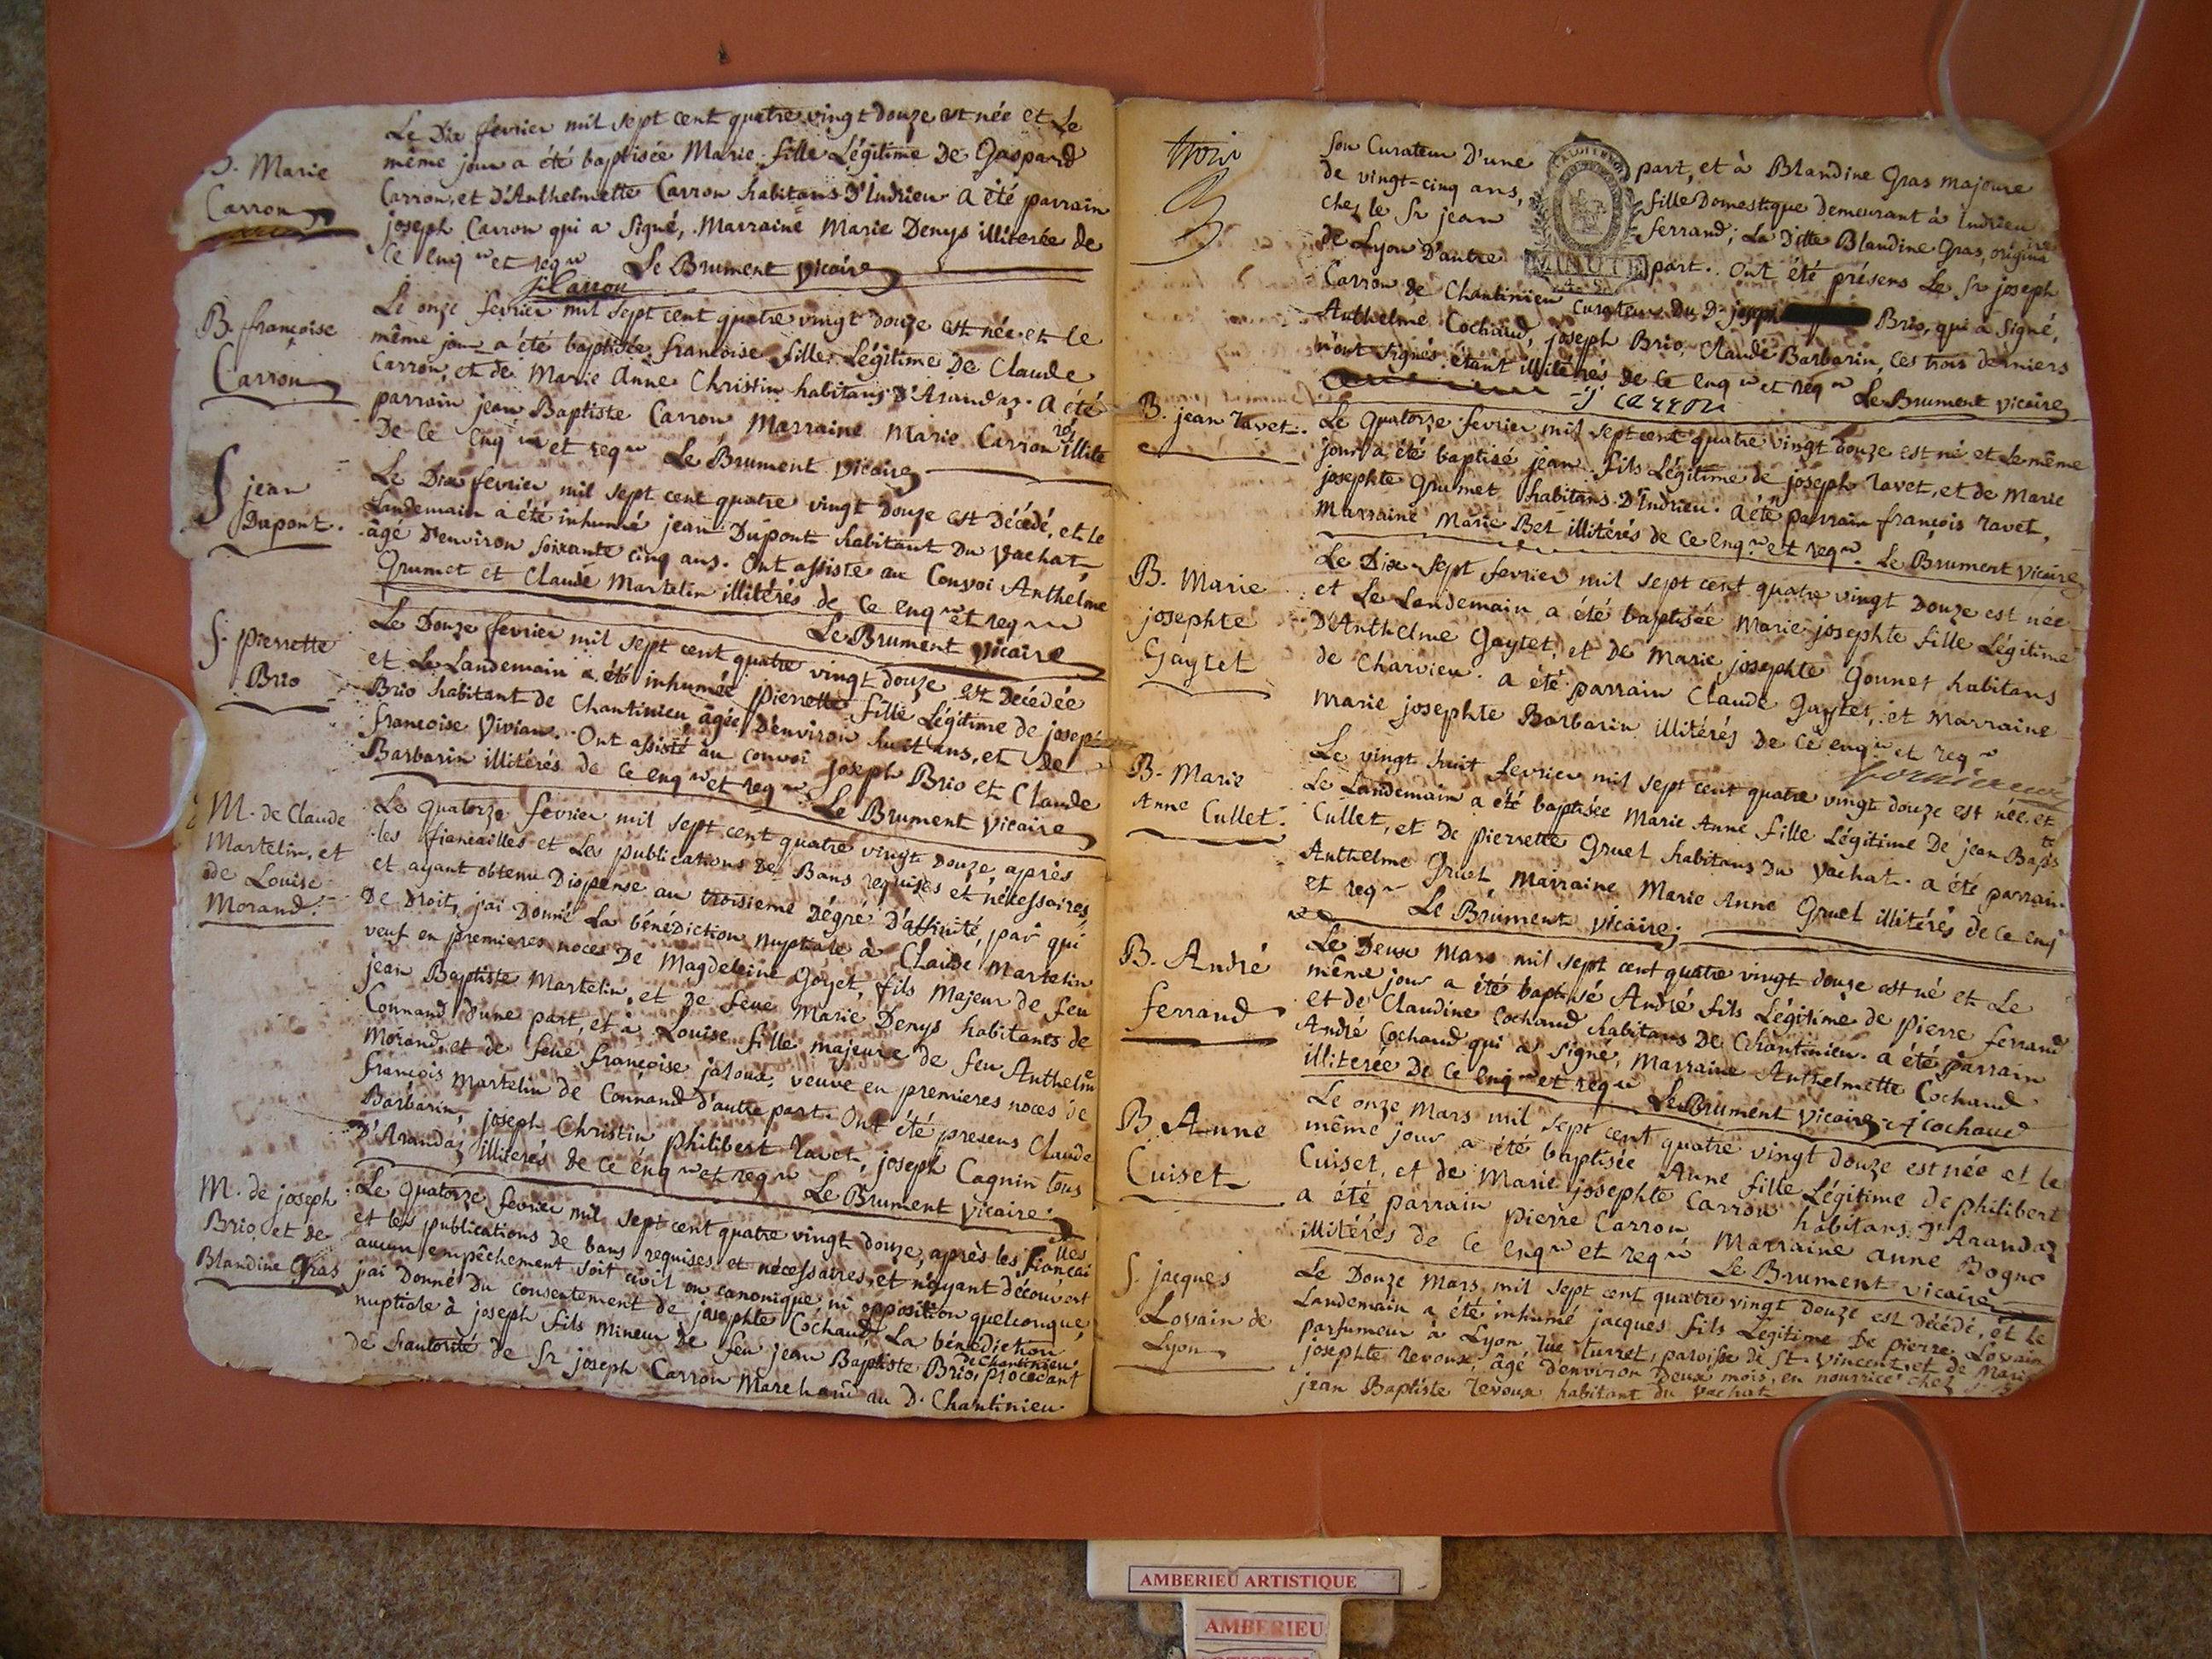 B. Marie
Carron
Le Dix fevrier mil sept cent quatre vingt douze est née et Le
même jour a été baptisée Marie fille Légitime De Gaspard
Carron, et D'Anthelmette Carron habitans D'Indrieu a été parrain
joseph Carron qui a signé, Marraine Marie Denys illiterée de
ce enq et req Le Brument vicaire
Carron
B. françoise
Carron
Le onze fevrier mil sept cent quatre vingt douze est née et le
même jour a été baptisée françoise fille Légitime De Claude
Carron, et de Marie Anne Christin habitans D'Arandaz. a été
parrain jean Baptiste Carron Marraine Marie Carron illité
rés
De ce enq et req Le Brument vicaire
S jean
Dupont.
Le Dix fevrier mil sept cent quatre vingt Douze est Décédé, et le
Landemain a été inhumé jean Dupont habitant Du Vachat
âgé D'environ soixante cinq ans. Ont assisté au Convoi Anthelme
Grumet et Claude Martelin illitérés de ce enq et req
Le Brument vicaire
S. pierrette
Brio
Le Douze fevrier mil sept cent quatre vingt douze est Decédée
et Le Landemain a été inhumée pierrette fille Légitime de joseph
Brio habitant de Chantinieu âgée D'environ huit ans, et De
françoise Vivian. Ont assisté au convoi joseph Brio et Claude
Barbarin illitérés de ce enq et req Le Brument vicaire
M. de Claude
Martelin, et
de Louise
Morand.
Le quatorze fevrier mil sept cent quatre vingt douze, après
les fiancailles et Les publications De Bans requises et nécessaires,
et ayant obtenu Dispense au troisieme Dégré D'affinité, par qui
De Droit, j'ai Donné La bénédiction nuptiale à Claude Martelin
veuf en premieres noces De Magdeleine Goyet, fils Majeur de feu
jean Baptiste Martelin, et De feue Marie Denys habitants de
Connand d'une part, et à Louise fille majeure de feu Anthelme
Morand, et de feue françoise jaloux, veuve en premieres noces de
françois Martelin de Connand d'autre part. Ont été presens Claude
Barbarin, joseph Christin philibert Ravet, joseph Cagnin tous
D'Arandaz illiterés de ce enq et req Le Brument vicaire
M. de joseph
Brio, et de
Blandine Gras
Le Quatorze fevrier mil sept cent quatre vingt douze, après les fiançai
lles
et les publications De bans requises et nécessaires, et n'ayant découvert
aucun empêchement soit civil ou canonique, ni opposition quelconque,
j'ai Donné Du consentement de josephte Cochaud La bénédiction
nuptiale à joseph fils mineur De feu jean Baptiste Brio, procédant
de Chantinieu
de L'autorité de Sr joseph Carron Marchand au D. Chantinieu
trois
son Curateur D'une part, et à Blandine Gras majeure
de vingt-cinq ans, fille Domestique demeurant à Indrieu
chez le Sr jean ferrand; La Ditte Blandine Gras, origina
ire
de Lyon D'autre part. Ont été présens Le Sr joseph
MINUTE
Carron de Chantinieu Curateur Du D. joseph Brio, qui a signé,
Anthelme Cochaud, joseph Brio, Claude Barbarin, ces trois derniers
n'ont signés étant illitérés de ce enq et req Le Brument vicaire
j carron
B. jean Ravet.
Le Quatorze fevrier mil sept cent quatre vingt douze est né et Le même
jour a été baptisé jean fils Légitime de joseph Ravet, et de Marie
josephte Grumet habitans D'Indrieu. a été parrain françois Ravet,
Marraine Marie Bet illitérés de ce enq et req. Le Brument vicaire
B. Marie
josephte
Gaytet
Le Dix-Sept fevrier mil sept cent quatre vingt Douze est née
et Le Landemain a été baptisée Marie josephte fille Légitime
D'Anthelme Gaytet, et De Marie josephte Gounet habitans
de Charvieu. a été parrain Claude Gaytet, et Marraine
Marie josephte Barbarin illitérés de ce enq et req
B. Marie
Anne Cullet.
Le vingt huit fevrier mil sept cent quatre vingt douze est née et
Le Landemain a été baptisée Marie Anne fille Légitime De jean Baptis
te
Cullet, et De pierrette Gruel habitans Du Vachat. a été parrain
Anthelme Gruel, Marraine Marie Anne Gruel illitérés de ce enq
et req Le Brument vicaire
B. André
ferrand
Le Deux Mars mil sept cent quatre vingt douze est né et Le
même jour a été baptisé André fils Légitime de pierre ferrand
et de Claudine Cochaud habitans De Chantinieu. a été parrain
André Cochaud qui a signé, Marraine Anthelmette Cochaud
illiterée De ce enq et req Le Brument vicaire cochaud
B Anne
Cuiset
Le onze Mars mil sept cent quatre vingt douze est née et le
même jour a été baptisée Anne fille Légitime de philibert
Cuiset, et de Marie josephte Carron habitans D'Arandaz
a été parrain pierre Carron Marraine anne Bogno
illitérés de ce enq et req Le Brument vicaire
S. jacques
Lovain de
Lyon
Le Douze Mars mil sept cent quatre vingt douze est décédé, et le
Landemain a été inhumé jacques fils Légitime De pierre Lovain
parfumeur à Lyon, rue turret, paroisse de St. vincent, et de Marie
josephte Revoux, âgé d'environ Deux mois, en nourrice chez
jean Baptiste Revoux habitant du Vachat
AMBERIEU ARTISTIQUE
AMBERIEU